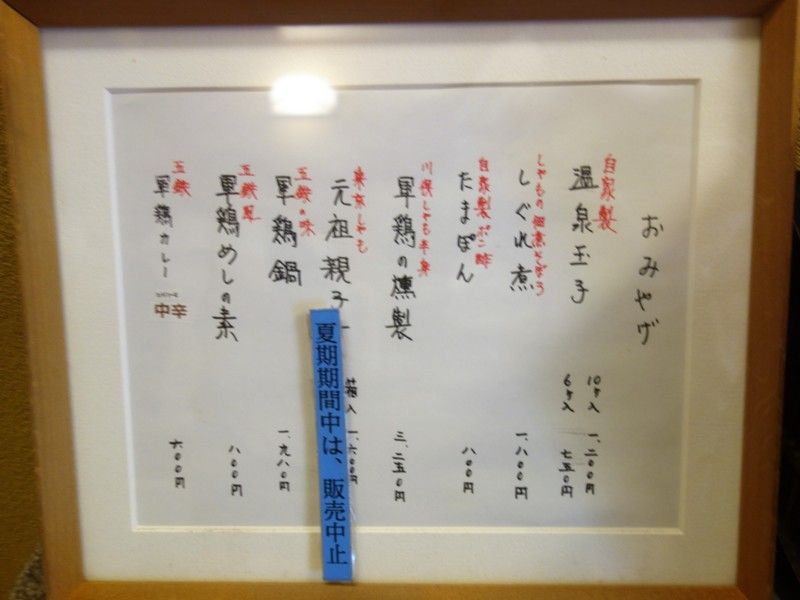 おみやげ
自家製
温泉玉子
10ヶ入 一、二〇〇円
6ヶ入 七五〇円
しゃもの佃煮そぼろ
しぐれ煮
一、八〇〇円
自家製ポン酢
たまぽん
八〇〇円
川俣しゃも半身
軍鶏の燻製
三、二五〇円
東京しゃも
元祖親子
箱入 一、六〇〇円
夏期期間中は、販売中止
五鉄の味
軍鶏鍋
一、九八〇円
五鉄
軍鶏めしの素
八〇〇円
五鉄
軍鶏カレー
中辛
六〇〇円